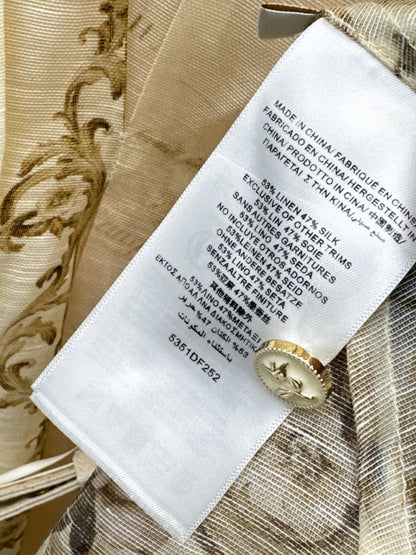 MADE IN CHINA/ FABRIQUÉ EN CHINE/
FABRICADO EN CHINA/ HERGESTELLT IN
CHINA/ PRODOTTO IN CINA/ 中国制造/
ΠΑΡΑΓΕΤΑΙ ΣΤΗΝ ΚΙΝΑ/ صنع في الصين
53% LINEN 47% SILK
EXCLUSIVE OF OTHER TRIMS
53% LIN 47% SOIE
SANS AUTRES GARNITURES
53% LINO 47% SEDA
NO INCLUIDO OTROS ADORNOS
53% LEINEN 47% SEIDE
OHNE ANDERE BESÄTZE
53% LINO 47% SETA
SENZA ALTRE FINITURE
53%亚麻 47%桑蚕丝
其他辅料除外
53% ΛΙΝΟ 47% ΜΕΤΑΞΙ
ΕΚΤΟΣ ΑΠΟ ΑΛΛΑ ΔΙΑΚΟΣΜΗΤΙΚΑ
53% الكتان 47% حرير
باستثناء المكونات
5351DF252